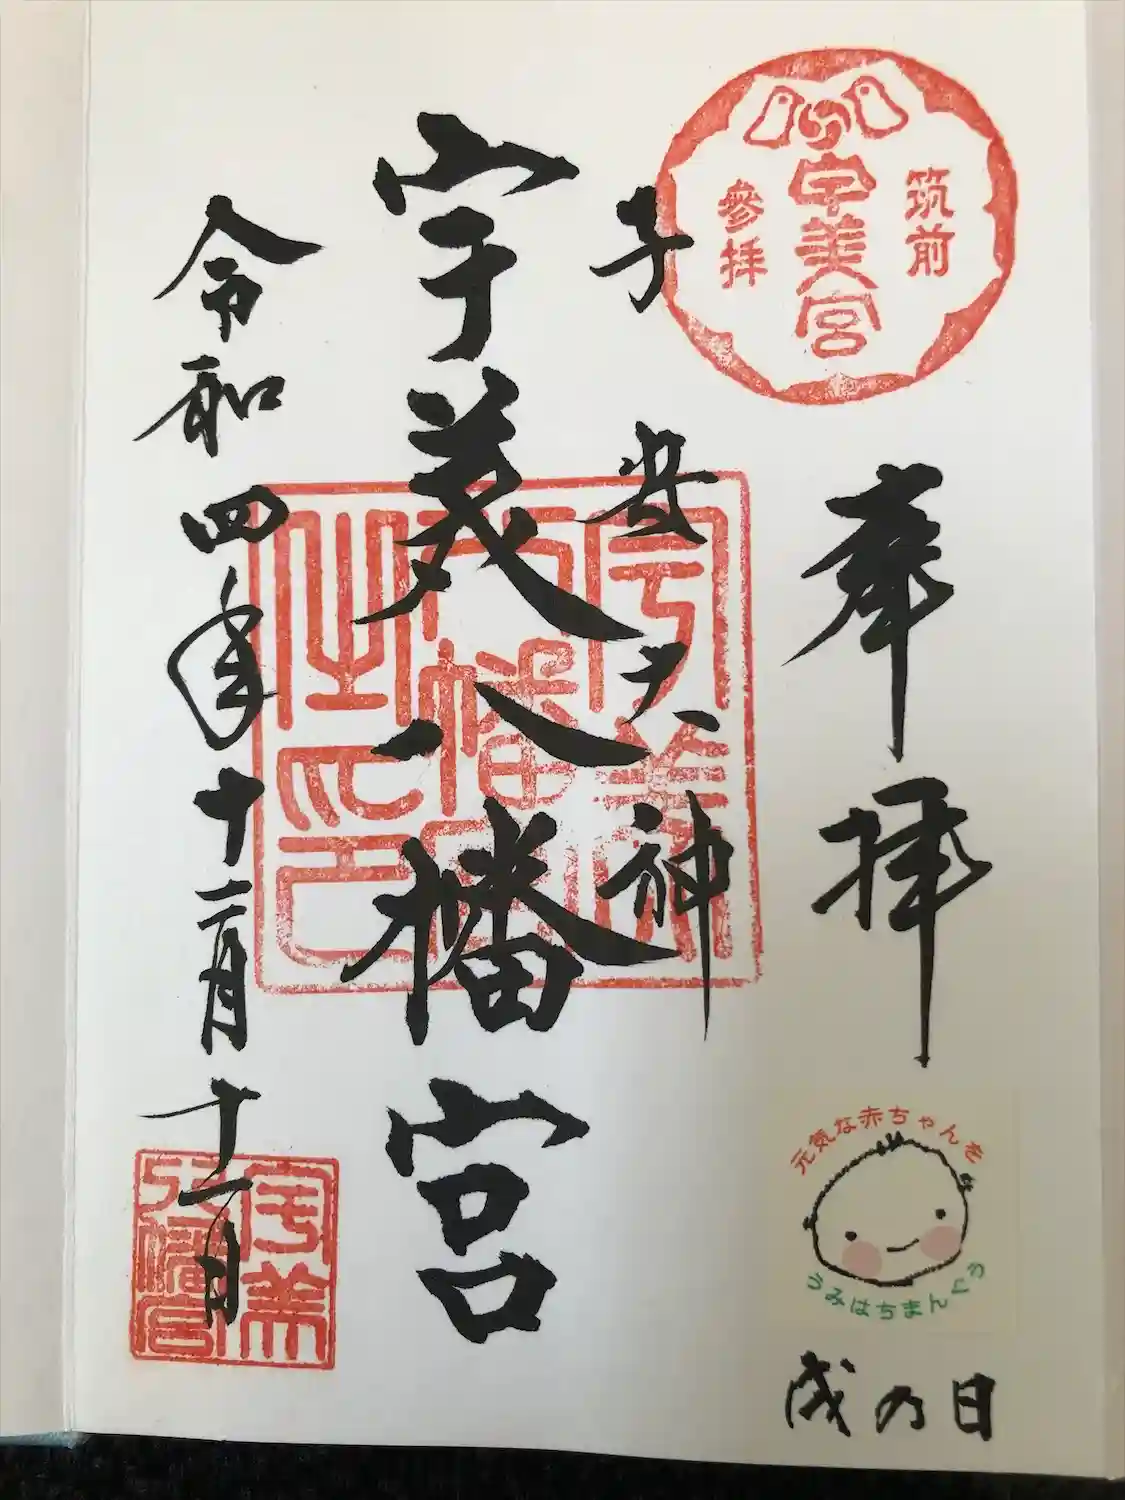 筑前
宇美宮
參拝
奉拝
子安大神
宇美八幡宮
令和四年十二月十一日
宇美
八幡宮
之印
宇美
八幡宮
元気な赤ちゃんを
うみはちまんぐう
戌乃日